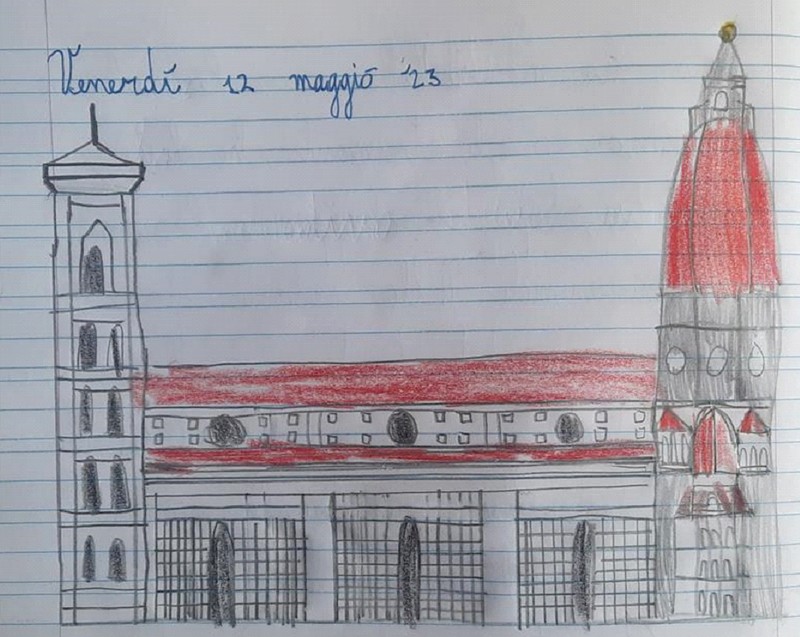 Venerdí 12 maggio '23